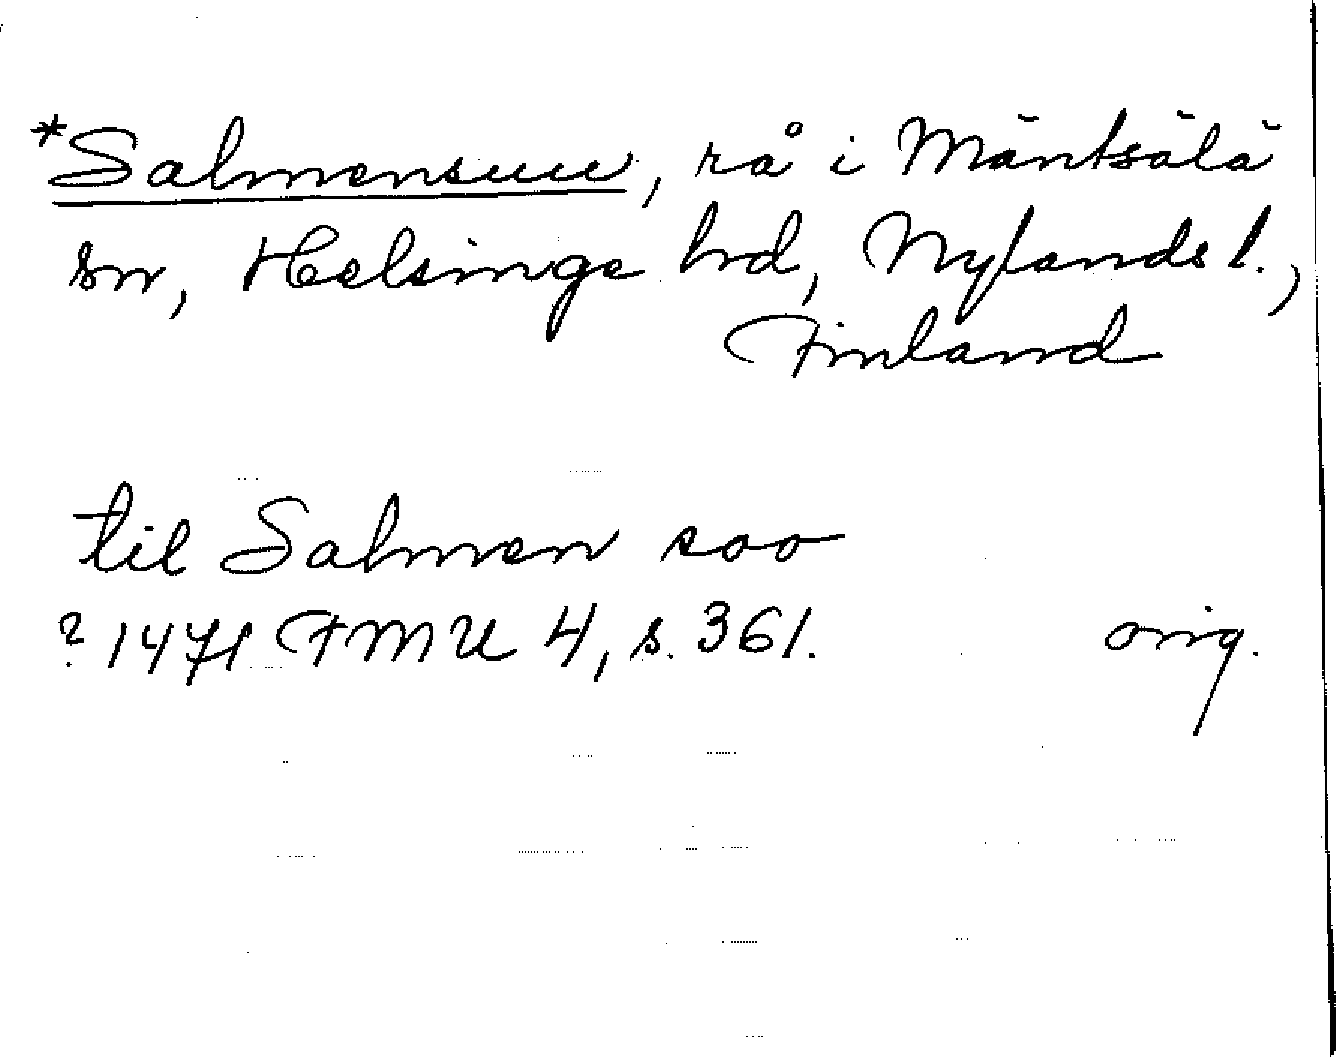 *Salmensuu, rå i Mäntsälä
sn, Helsinge hd, Nylands l.,
Finland
til Salmen soo
? 1471 FMU 4, s. 361. orig.